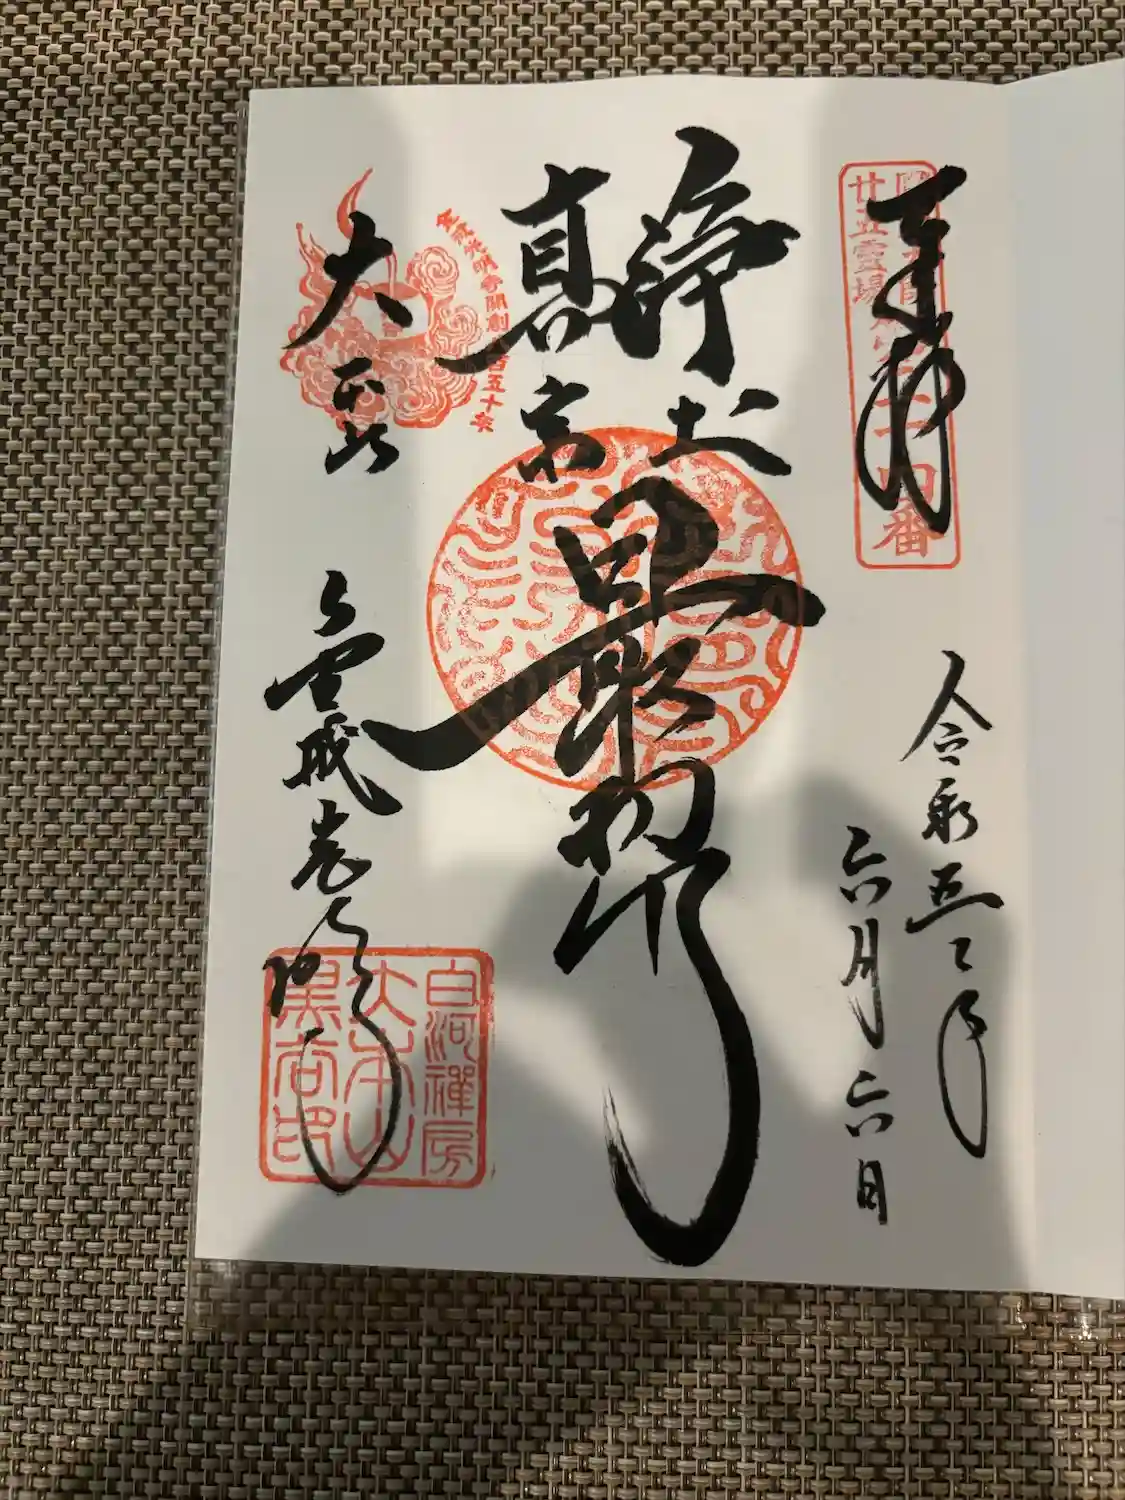 奉拝
廿五霊場
二十四番
令和五年
六月六日
浄土
真宗
最初門
大本山
金戒光明寺
白河禅房
大本山
黒谷印